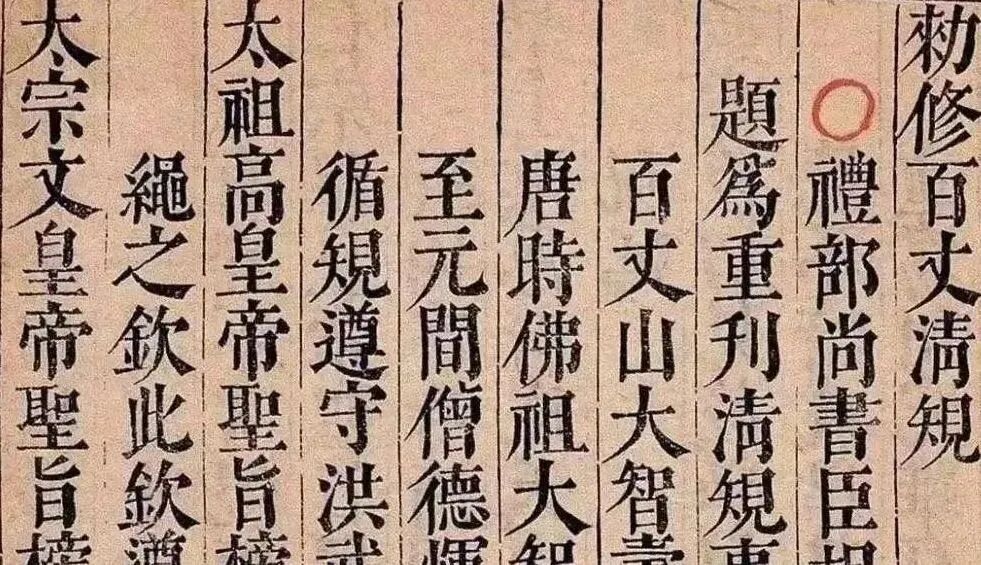 勑修百丈清規
禮部尚書臣胡
題爲重刋清規事
百丈山大智壽
唐時佛祖大智
至元間僧德煇
循規遵守洪武
太祖高皇帝聖旨榜
繩之欽此欽遵
太宗文皇帝聖旨榜